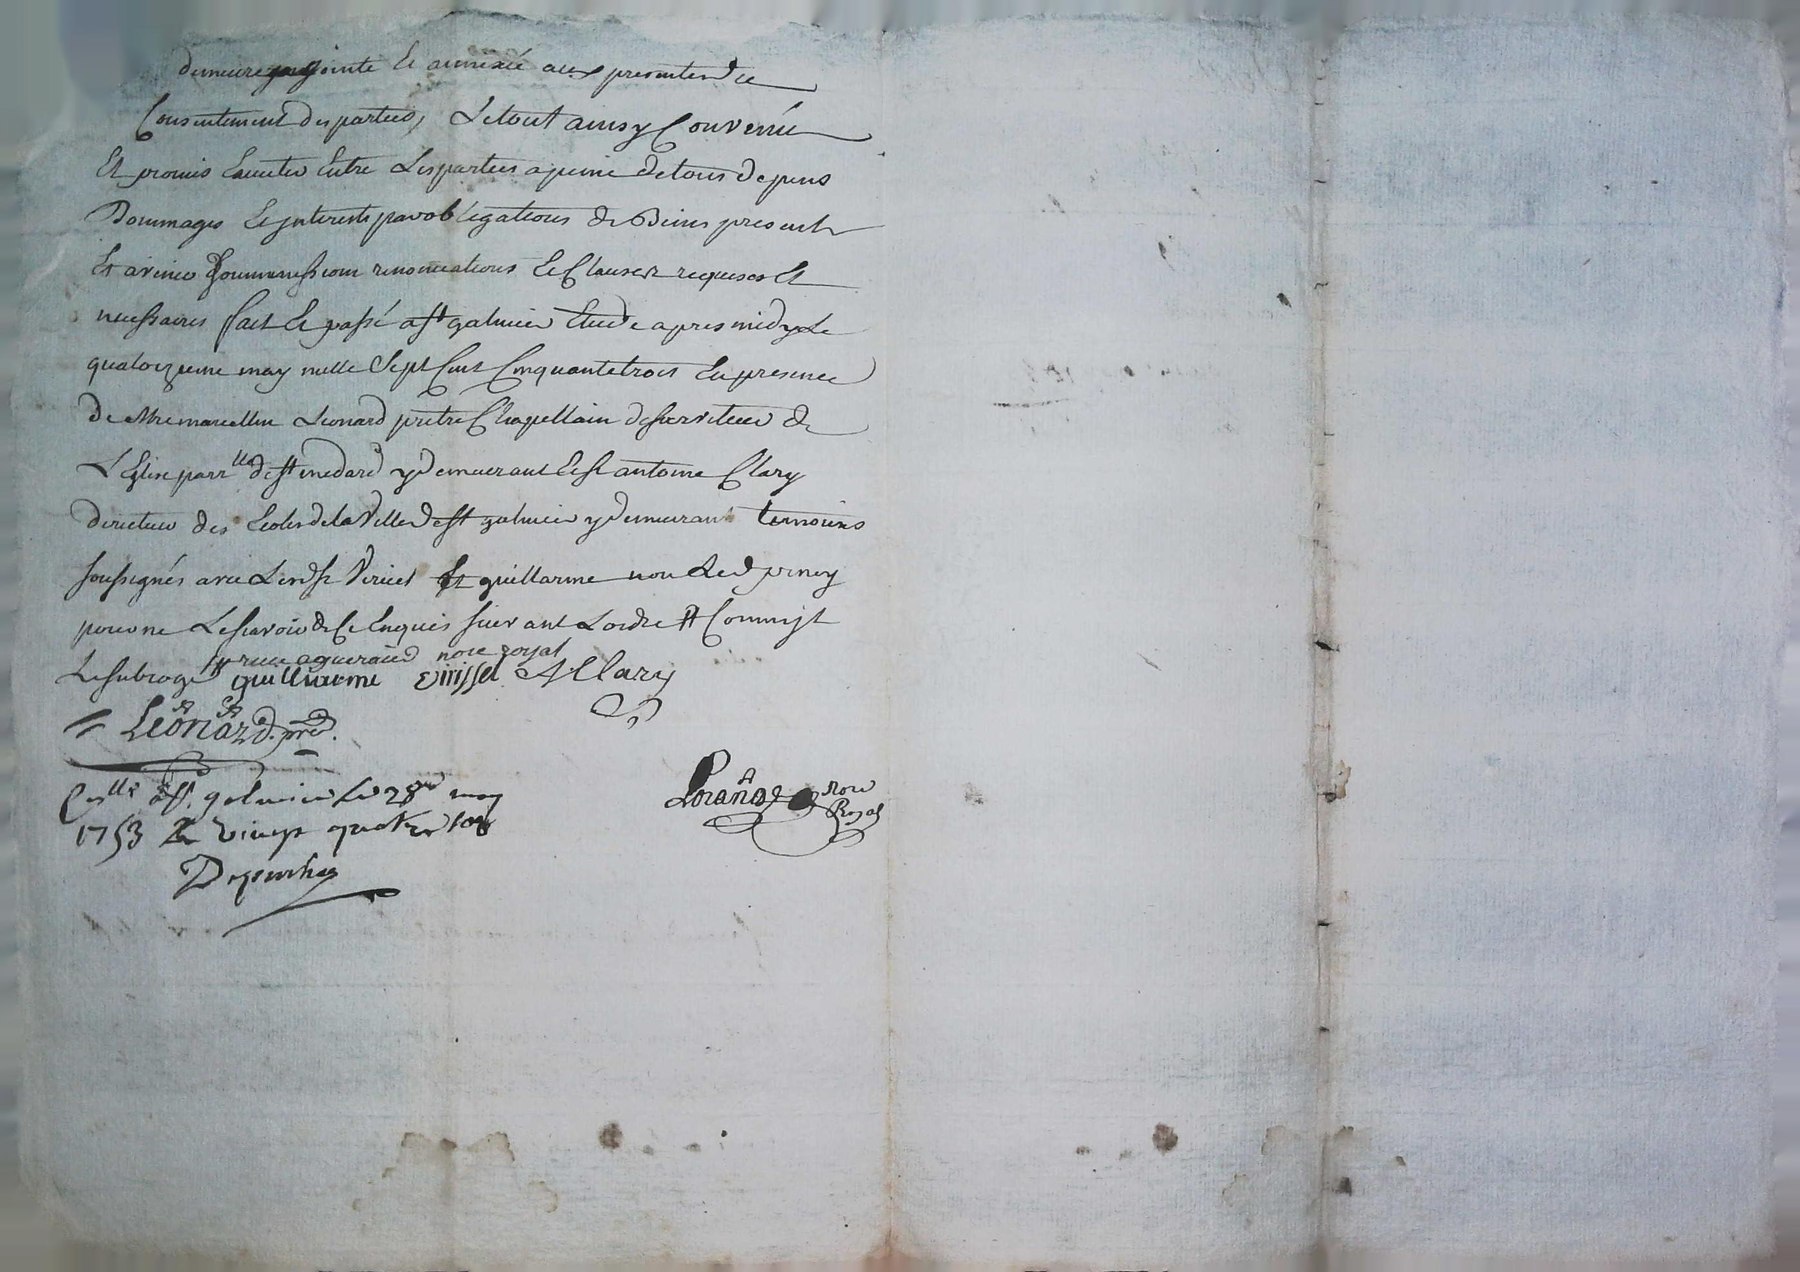 demeure jointe et annexée aux presentes du
Consentement des parties, Le tout ainsy Convenu
Et promis Executer Entre Les parties a peine de tous depens
Dommages Et jnterests par obligations de Biens presents
Et avenir Soummission renonciations Et Clauses requises Et
necessaires fait Et passé a st galmier Etude apres midy Le
quatorzieme may mille Sept Cent Cinquante trois En presence
de Mre marcellin Leonard prêtre Chapellain desserviteur de
L'Eglise parrlle de st medard y demeurant Et Sr antoine Clary
directeur des Ecoles de la Ville de st galmier y demeurant temoins
soussignés avec Ledt Sr Et guillarme non Led
pour ne Le scavoir de Ce Enquis suivant Lordre
nore royal
Le subrogé guilliarme virissel A Clary
Leonard. pre.
Conlle a st. galmier le 28e may
1753 R vingt quatre sols
nore
Royal